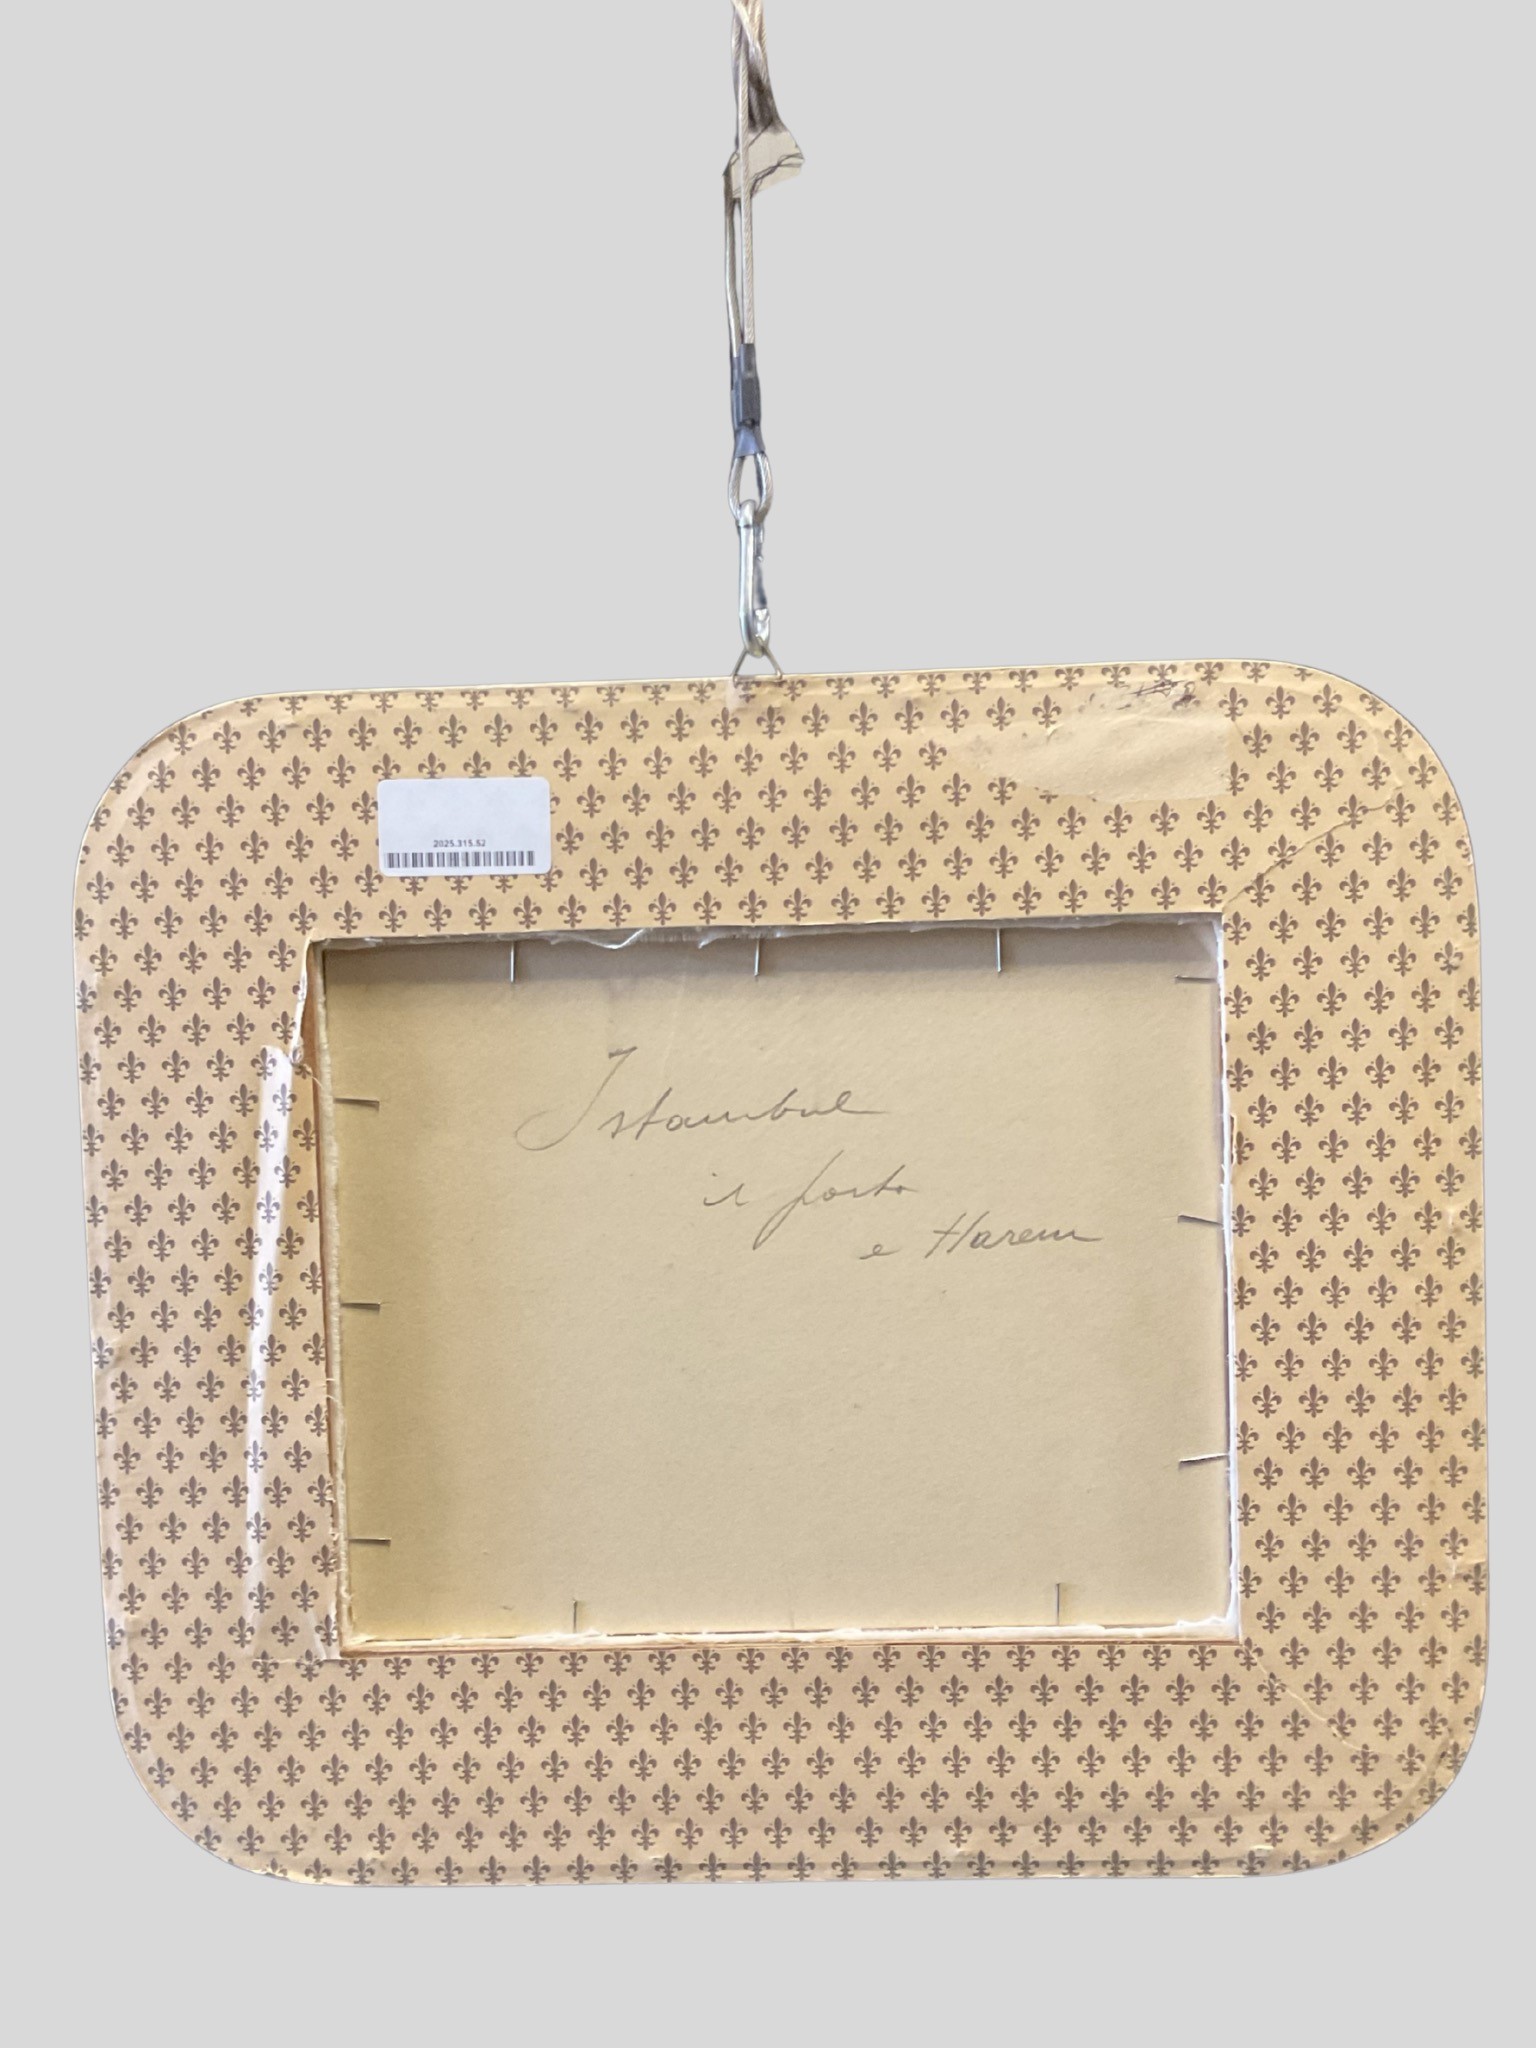 2025.315.52
Istambul
il porto
e Harem